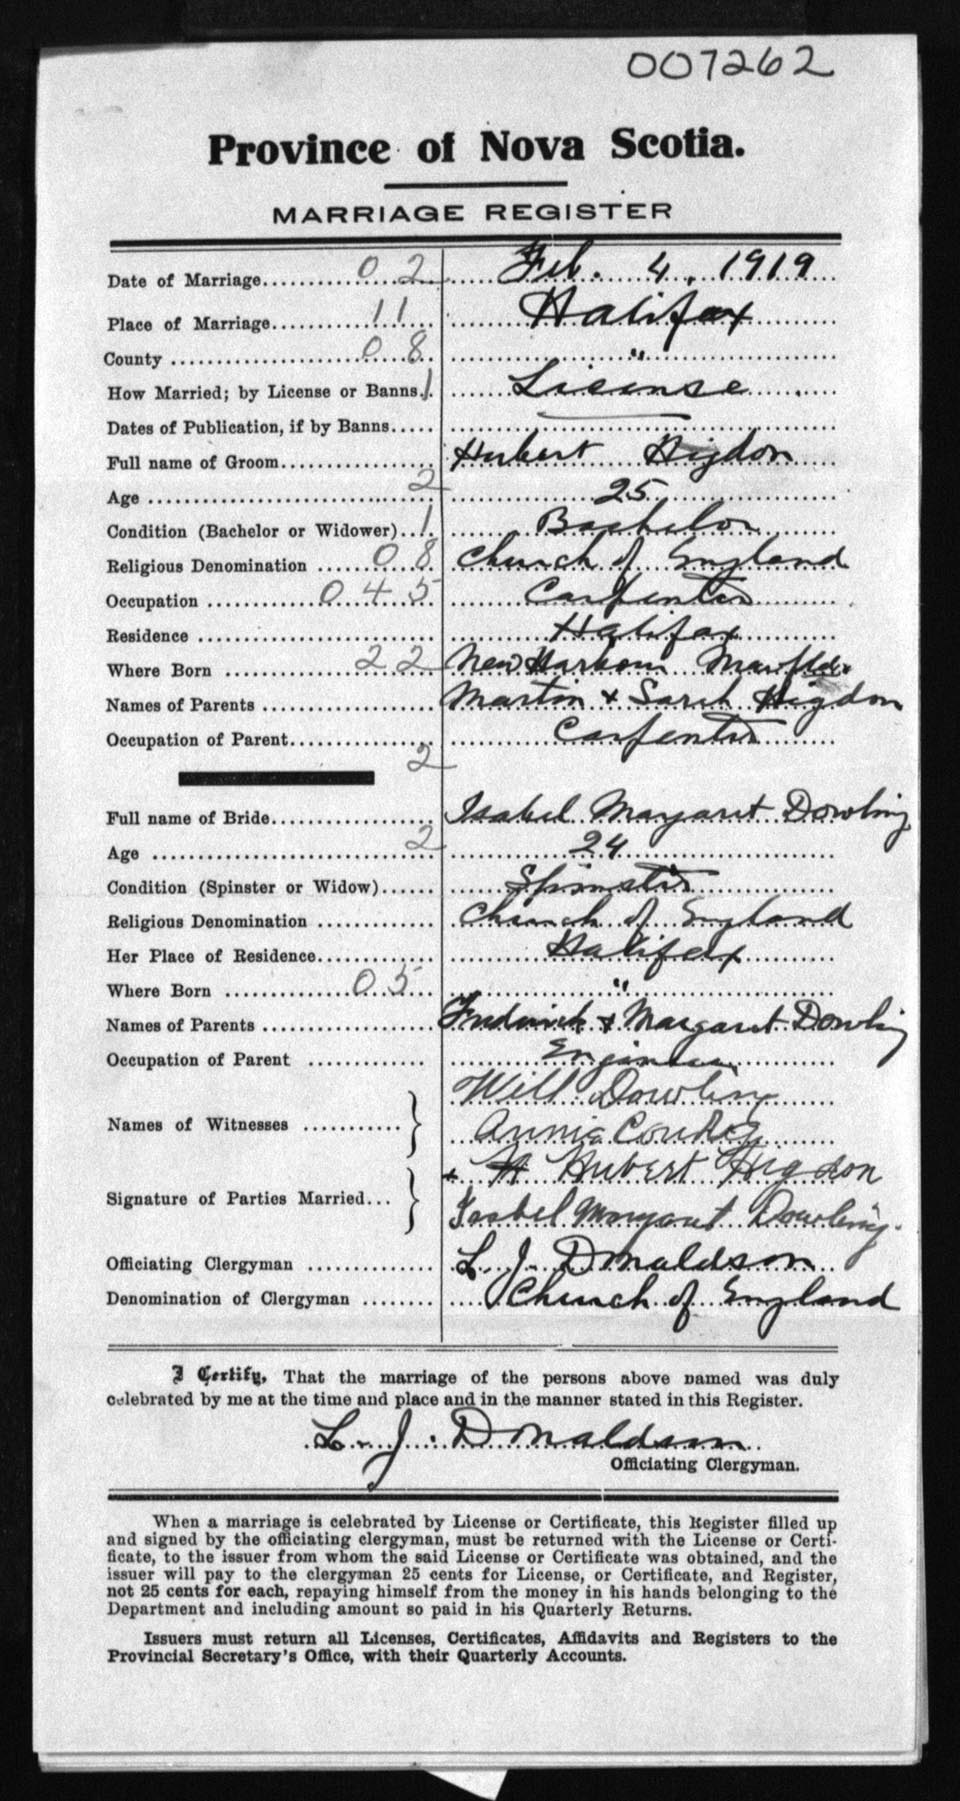 007262
Province of Nova Scotia.
MARRIAGE REGISTER
Date of Marriage 02 Feb. 4, 1919
Place of Marriage 11 Halifax
County 08 "
How Married; by License or Banns 1 License
Dates of Publication, if by Banns
Full name of Groom Hubert Higdon
Age 2 25
Condition (Bachelor or Widower) 1 Bachelor
Religious Denomination 08 Church of England
Occupation 045 Carpenter
Residence Halifax
Where Born 22 New Harbour
Names of Parents Martin & Sarah Higdon
Occupation of Parent Carpenter
2
Full name of Bride Isabel Margaret Dowling
Age 2 24
Condition (Spinster or Widow) Spinster
Religious Denomination Church of England
Her Place of Residence Halifax
Where Born 05 "
Names of Parents Frederick & Margaret Dowling
Occupation of Parent Engineer
Will Dowling
Names of Witnesses
Annie
x H Hubert Higdon
Signature of Parties Married...
Isabel Margaret Dowling.
Officiating Clergyman L. J. Donaldson
Denomination of Clergyman Church of England
I Certify, That the marriage of the persons above named was duly
celebrated by me at the time and place and in the manner stated in this Register.
L. J. Donaldson
Officiating Clergyman.
When a marriage is celebrated by License or Certificate, this Register filled up
and signed by the officiating clergyman, must be returned with the License or Certi-
ficate, to the issuer from whom the said License or Certificate was obtained, and the
issuer will pay to the clergyman 25 cents for License, or Certificate, and Register,
not 25 cents for each, repaying himself from the money in his hands belonging to the
Department and including amount so paid in his Quarterly Returns.
Issuers must return all Licenses, Certificates, Affidavits and Registers to the
Provincial Secretary's Office, with their Quarterly Accounts.